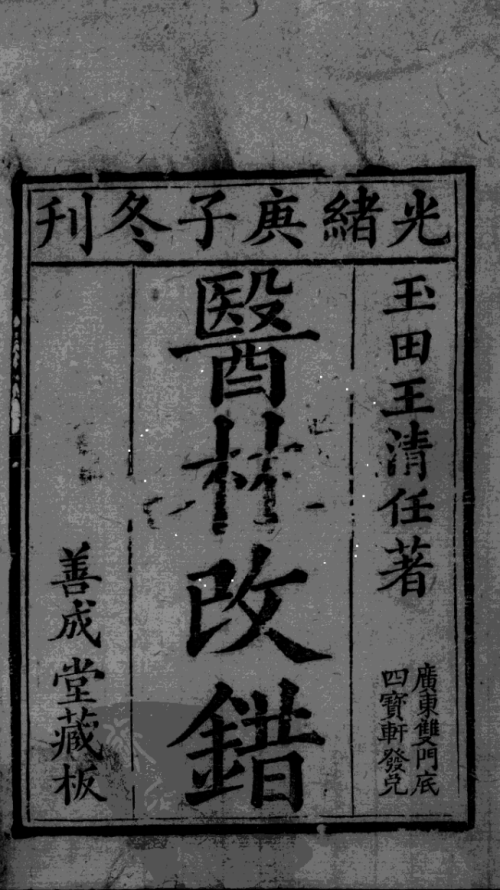 光緒庚子冬刊
玉田王清任著
廣東雙門底
四寶軒發兌
醫林改錯
善成堂藏板